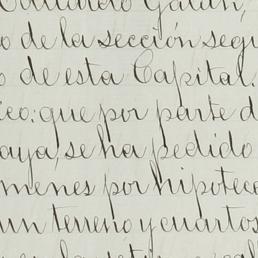 Galán,
o de la sección segu
o de esta Capital.
co: que por parte d
aya, se ha pedido
menes por hipoteca
un terreno y cuartos